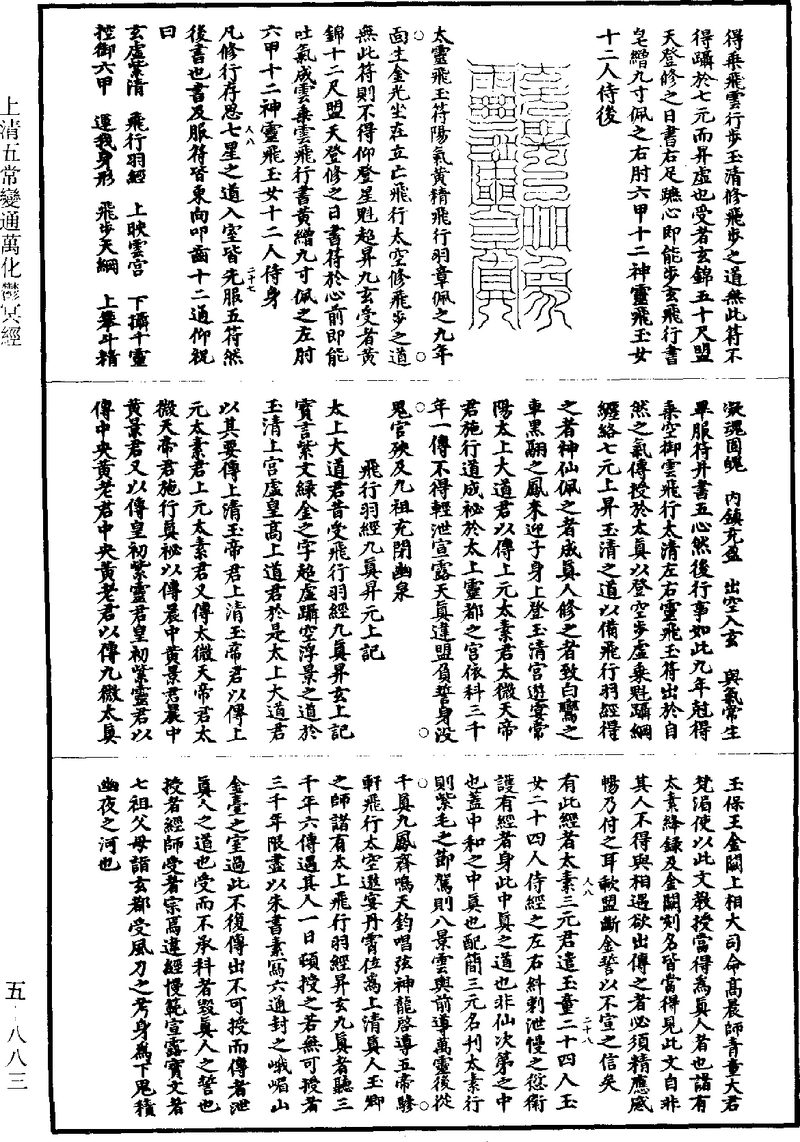 得乘飛雲行步玉清修飛步之道無此符不
得躡於七元而昇虛也受者玄錦五十尺盟
天登修之日書右足蹠心即能步玄飛行書
皂繒九寸佩之右肘六甲十二神靈飛玉女
十二人侍後
太靈飛玉符陽氣黃精飛行羽章佩之九年
面生金光坐在立亡飛行太空修飛步之道
無此符則不得仰登星魁超昇九玄受者黃
錦十二尺盟天登修之日書符於心前即能
吐氣成雲乘雲飛行書黃繒九寸佩之左肘
六甲十二神靈飛玉女十二人侍身
凡修行存思七星之道入室皆先服五符然
後書也書及服符皆東向叩齒十二通仰祝
曰
玄虛紫清 飛行羽經 上映雲宮 下攝千靈
控御六甲 運我身形 飛步天綱 上攀斗精
凝魂固魄 內鎮充盈 出空入玄 與氣常生
畢服符并書五心然後行事如此九年尅得
乘空御雲飛行太清左右靈飛玉符出於自
然之氣傳授於太真以登空步虛乘魁躡綱
纏絡七元上昇玉清之道以備飛行羽經得
之者神仙佩之者成真人修之者致白鸞之
車黑翮之鳳來迎子身上登玉清宮遊宴常
陽太上大道君以傳上元太素君太微天帝
君施行道成祕於太上靈都之宮依科三千
年一傳不得輕泄宣露天真違盟負誓身沒
鬼官殃及九祖充閉幽泉
飛行羽經九真昇元上記
太上大道君昔受飛行羽經九真昇玄上記
寶言紫文綠金之字超虛躡空浮景之道於
玉清上宮虛皇高上道君於是太上大道君
以其要傳上清玉帝君上清玉帝君以傳上
元太素君上元太素君又傳太微天帝君太
微天帝君施行真祕以傳晨中黃景君晨中
黃景君又以傳皇初紫靈君皇初紫靈君以
傳中央黃老君中央黃老君以傳九微太真
玉保王金闕上相大司命高晨師青童大君
梵渴使以此文教授當得為真人者也諸有
太素絳錄及金闕刻名皆當得見此文自非
其人不得與相遇欲出傳之者必須精應感
暢乃付之耳歃盟斷金誓以不宣之信矣
有此經者太素三元君遣玉童二十四人玉
女二十四人侍經之左右糾剌泄慢之愆衛
護有經者身此中真之道也非仙次第之中
也蓋中和之中真也配簡三元名刊太素行
則紫毛之節駕則八景雲輿前導萬靈後從
千真九鳳齊鳴天鈞唱弦神龍啓導五帝驂
軒飛行太空遨宴丹霄位為上清真人玉卿
之師諸有太上飛行羽經昇玄九真者聽三
千年六傳遇其人一日頓授之若無可授者
三千年限盡以朱書素寫六通封之峨嵋山
金臺之室過此不復傳出不可授而傳者泄
真人之道也受而不承科者毀真人之誓也
授者經師受者宗焉違經慢範宣露寶文者
七祖父母詣玄都受風刀之考身為下鬼積
幽夜之河也
人八
二十七
人八
二十八
上清五常變通萬化鬱冥經
五-八八三